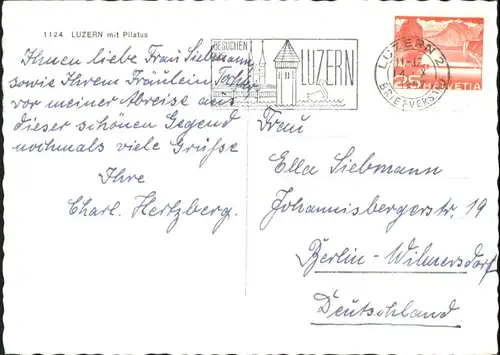 1124 LUZERN mit Pilatus
Ihnen liebe Frau Siebmann
sowie Ihrem Fräulein Tochter
vor meiner Abreise aus
dieser schönen Gegend
nochmals viele Grüße
Ihre
Charl. Hertzberg.
BESUCHEN
LUZERN
LUZERN 2
BRIEFVERSAND
25 HELVETIA
Frau
Ella Siebmann
Johannisbergerstr. 19
Berlin-Wilmersdorf
Deutschland.